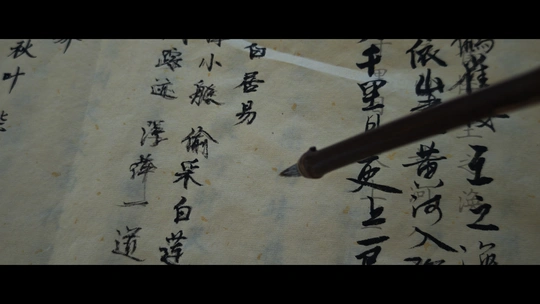 雀楼 王之
依山尽 黄河入
千里目 更上一
白居易
小艇 偷采白莲
踪迹 浮萍一道
秋叶